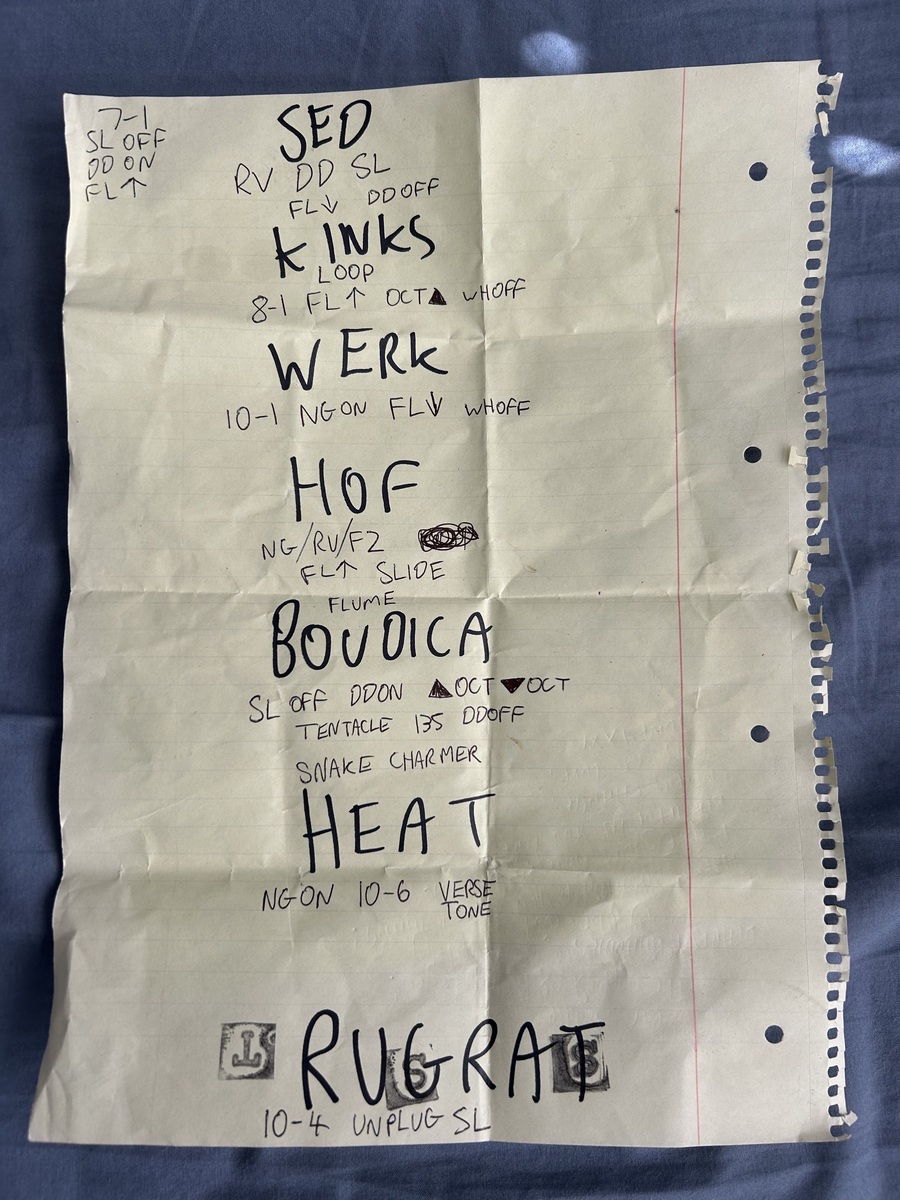 7-1
SL OFF
DD ON
FL↑
SED
RV DD SL
FL↓ DD OFF
KINKS
LOOP
8-1 FL↑ OCT▲ WHOFF
WERK
10-1 NG ON FL↓ WHOFF
HOF
NG/RV/FZ
FL↑ SLIDE
FLUME
BOUDICA
SL OFF DDON ▲OCT ▼OCT
TENTACLE 135 DDOFF
SNAKE CHARMER
HEAT
NG ON 10-6 VERSE
TONE
T RUGRAT
10-4 UNPLUG SL